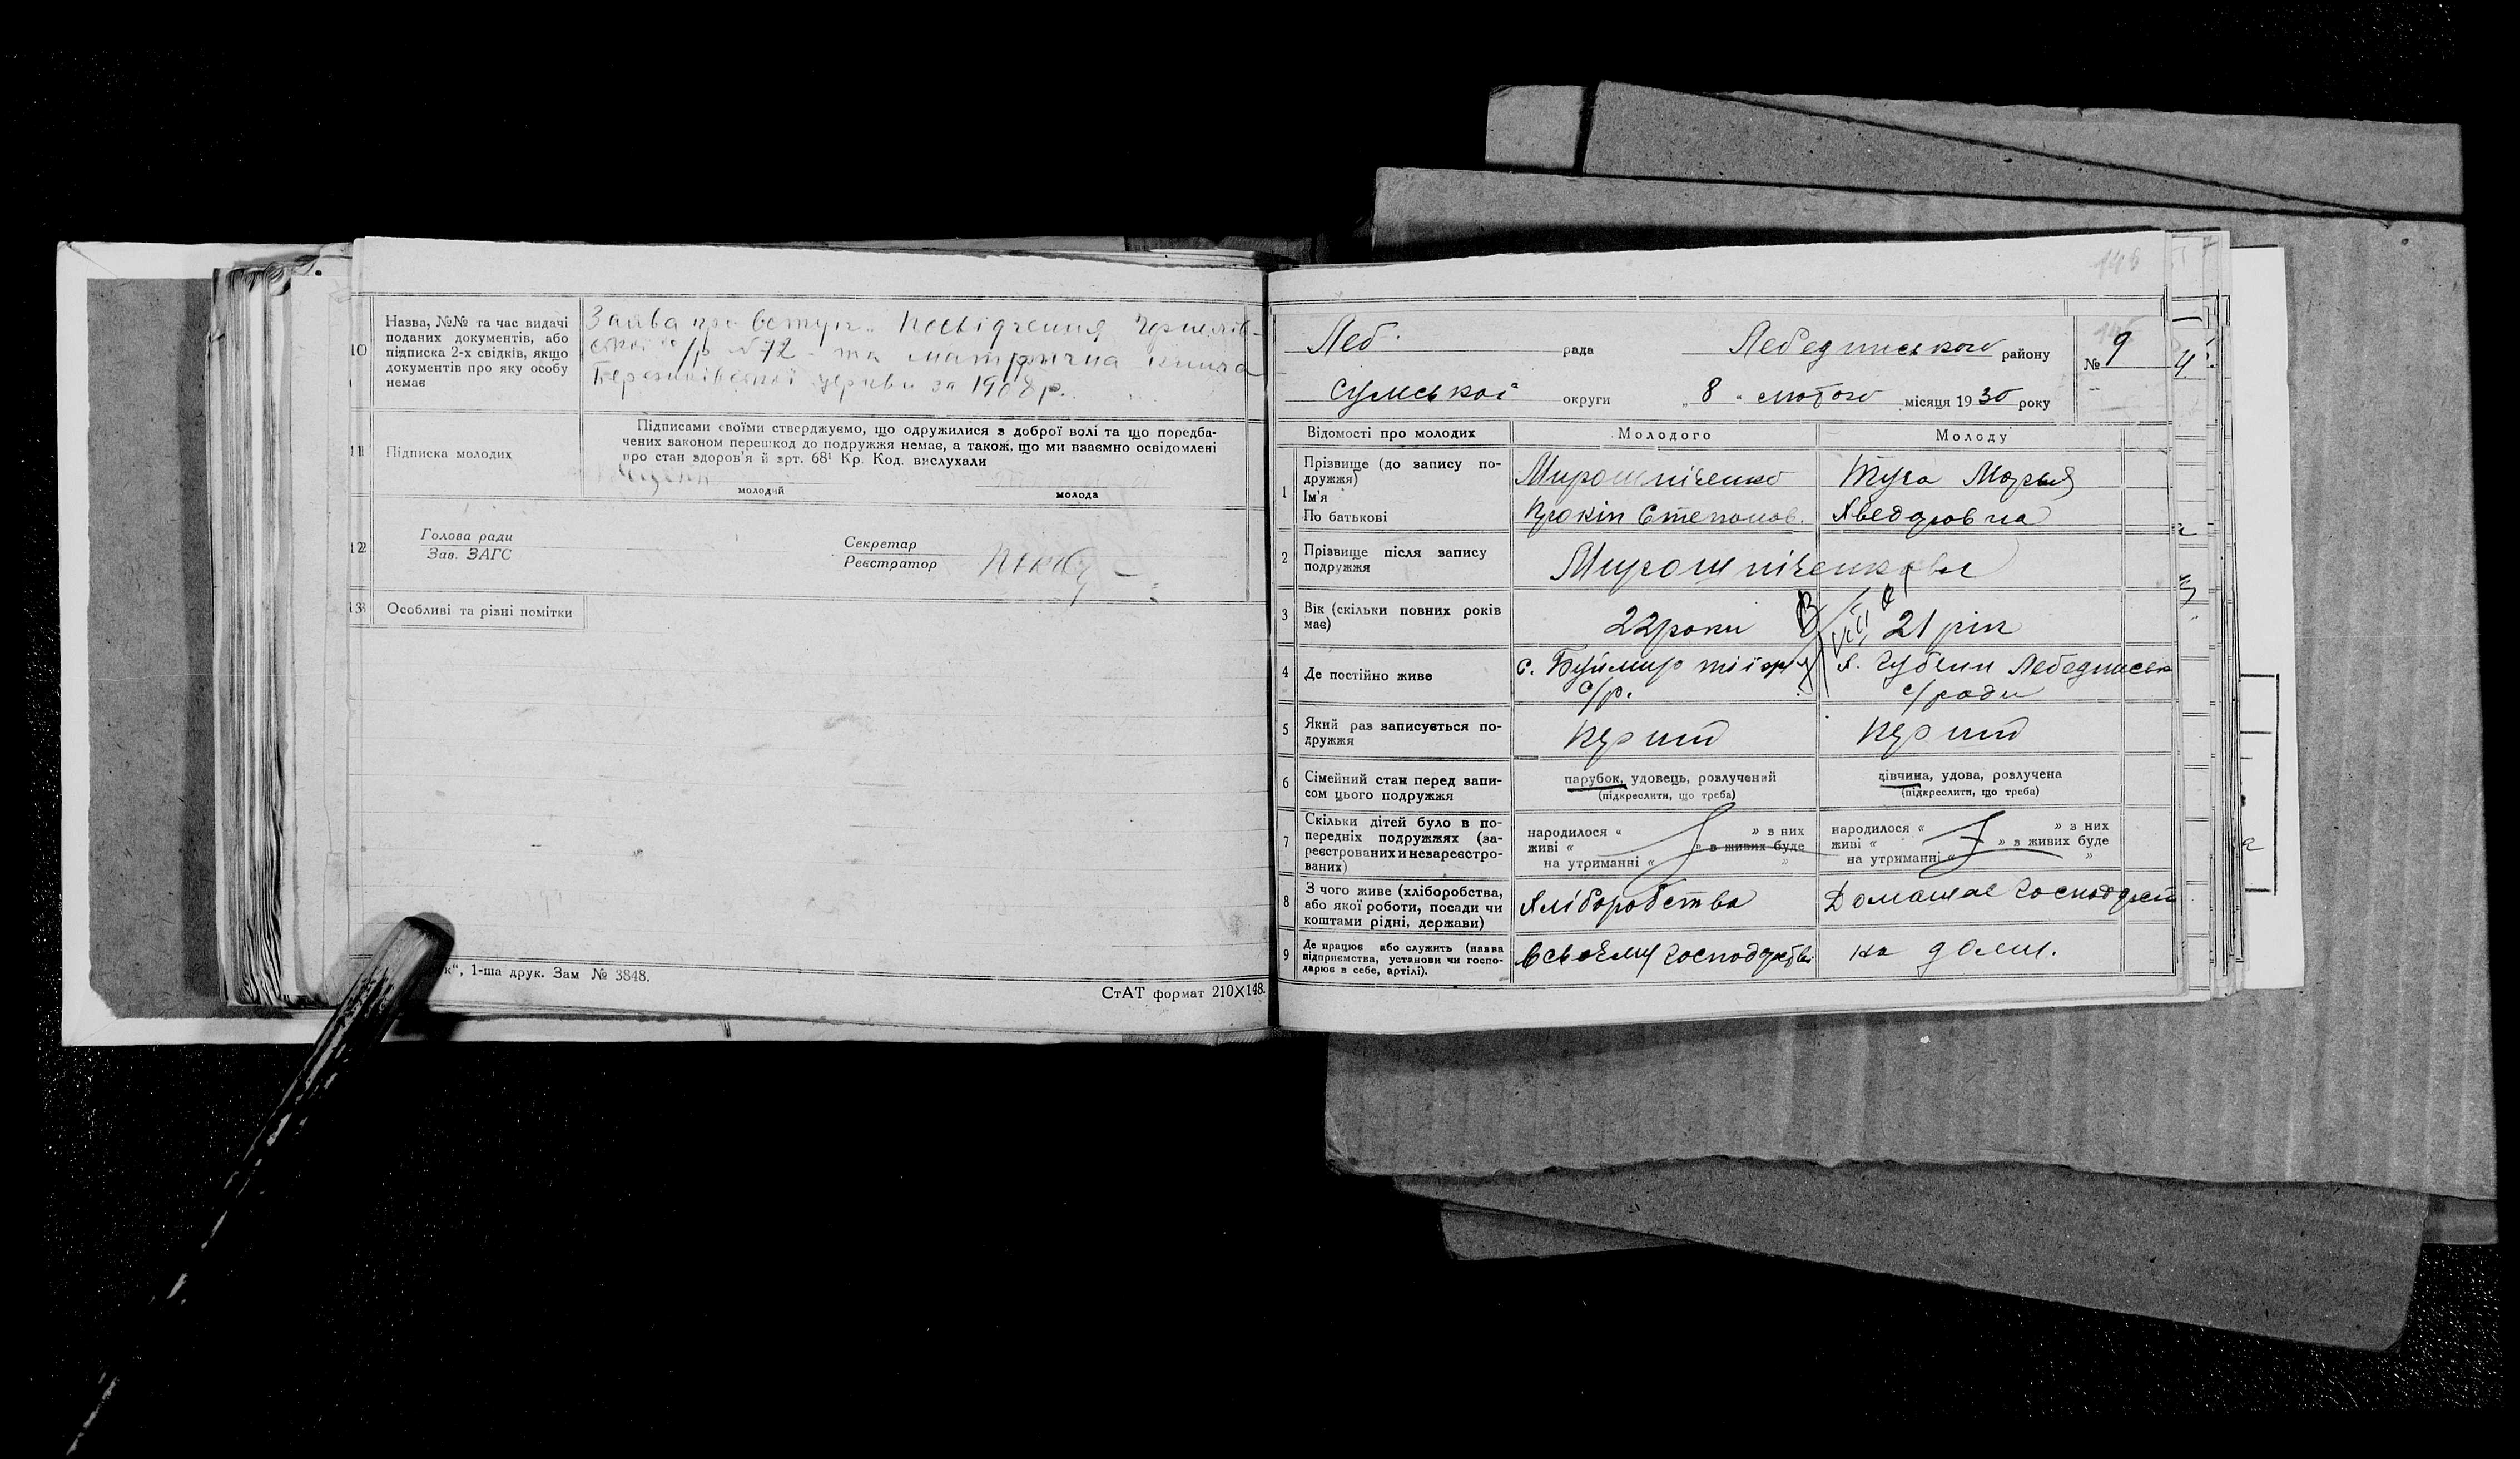 10
Назва, №№ та час видачі
поданих документів, або
підписка 2-х свідків, якщо
документів про яку особу
немає
Заява про вступ. Посвідчення
с/р №72 - та матрична книга
церкви за 1908 р.
11
Підписка молодих
Підписами своїми стверджуємо, що одружилися з доброї волі та що поредба-
чених законом перешкод до подружжя немає, а також, що ми взаємно освідомлені
про стан здоров'я й арт. 68¹ Кр. Код. вислухали
молодий
молода
12
Голова ради
Зав. ЗАГС
Секретар
Реєстратор
13
Особливі та різні помітки
к", 1-ша друк. Зам № 3848.
СтАТ формат 210×148.
146
Леб. рада Лебединського району
№ 9
Сумської округи „ 8 " лютого місяця 1930 року
Відомості про молодих
Молодого
Молоду
1
Прізвище (до запису по-
дружжя)
Ім'я
По батькові
Мирошніченко
Прокіп Степанов.
Туга Марья
Хведоровна
2
Прізвище після запису
подружжя
Мирошніченкови
3
Вік (скільки повних років
має)
22 роки
21 рік
4
Де постійно живе
с. Буймир
с/р.
х. Лебединськ
с/ради
5
Який раз записується по-
дружжя
перший
перший
6
Сімейний стан перед запи-
сом цього подружжя
парубок, удовець, розлучений
(підкреслити, що треба)
дівчина, удова, розлучена
(підкреслити, що треба)
7
Скільки дітей було в по-
передніх подружжях (за-
реєстрованих и незареєстро-
ваних)
народилося « » з них
живі « » з живих буде
на утриманні « »
народилося « » з них
живі « » з живих буде
на утриманні « »
8
З чого живе (хліборобства,
або якої роботи, посади чи
коштами рідні, держави)
Хліборобства
Домашнє
9
Де працює або служить (назва
підприємства, установи чи госпо-
дарює в себе, артілі).
В своєму господарстві
на дому.